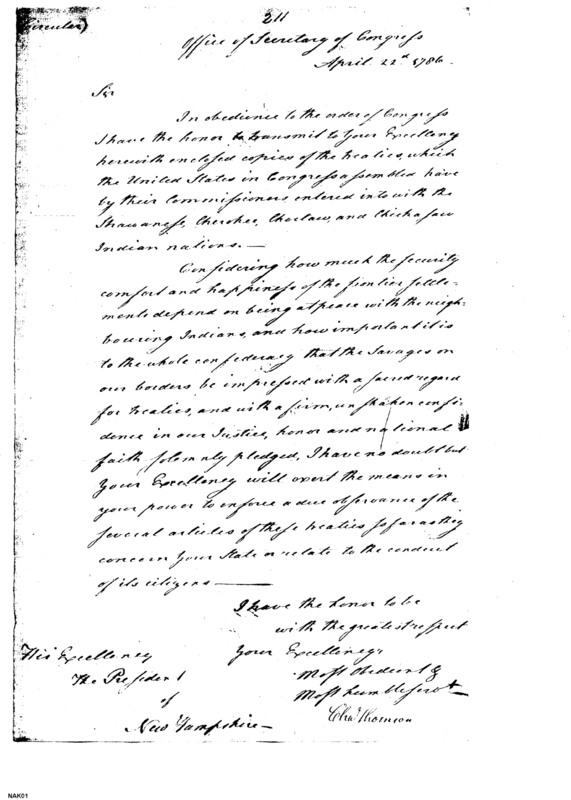 211
(Circular)
Office of Secretary of Congress
April 22d 1786.
Sir
In obedience to the order of Congress
I have the honor to transmit to Your Excellency
herewith enclosed copies of the treaties, which
the United States in Congress assembled have
by their Commissioners entered into with the
Shawanese, Cherokee, Choctaw, and Chickasaw
Indian nations. —
Considering how much the security
comfort and happiness of the frontier settle-
ments depend on being at peace with the neigh-
bouring Indians, and how important it is
to the whole confederacy that the Savages on
our borders be impressed with a sacred regard
for treaties, and with a firm, unshaken confi-
dence in our Justice, honor and national
faith solemnly pledged, I have no doubt but
Your Excellency will exert the means in
your power to enforce a due observance of the
several articles of these treaties so far as they
concern Your State or relate to the conduct
of its citizens —
I have the honor to be
with the greatest respect
Your Excellency's
Most obedient &
Most humble servt
Chas Thomson
His Excellency
The President
of
New Hampshire —
NAK01